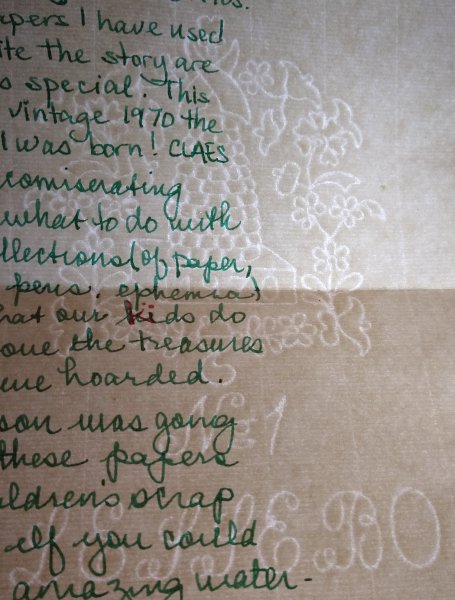 apers I have used
ite the story are
o special. This
vintage 1970 the
I was born! CLAES
comiserating
what to do with
llections (of paper,
pens, ephemera)
hat our kids do
one the treasures
we hoarded.
son was gong
these papers
ildren's scrap
elf you could
amazing water-
Nº 1
LESSEBO